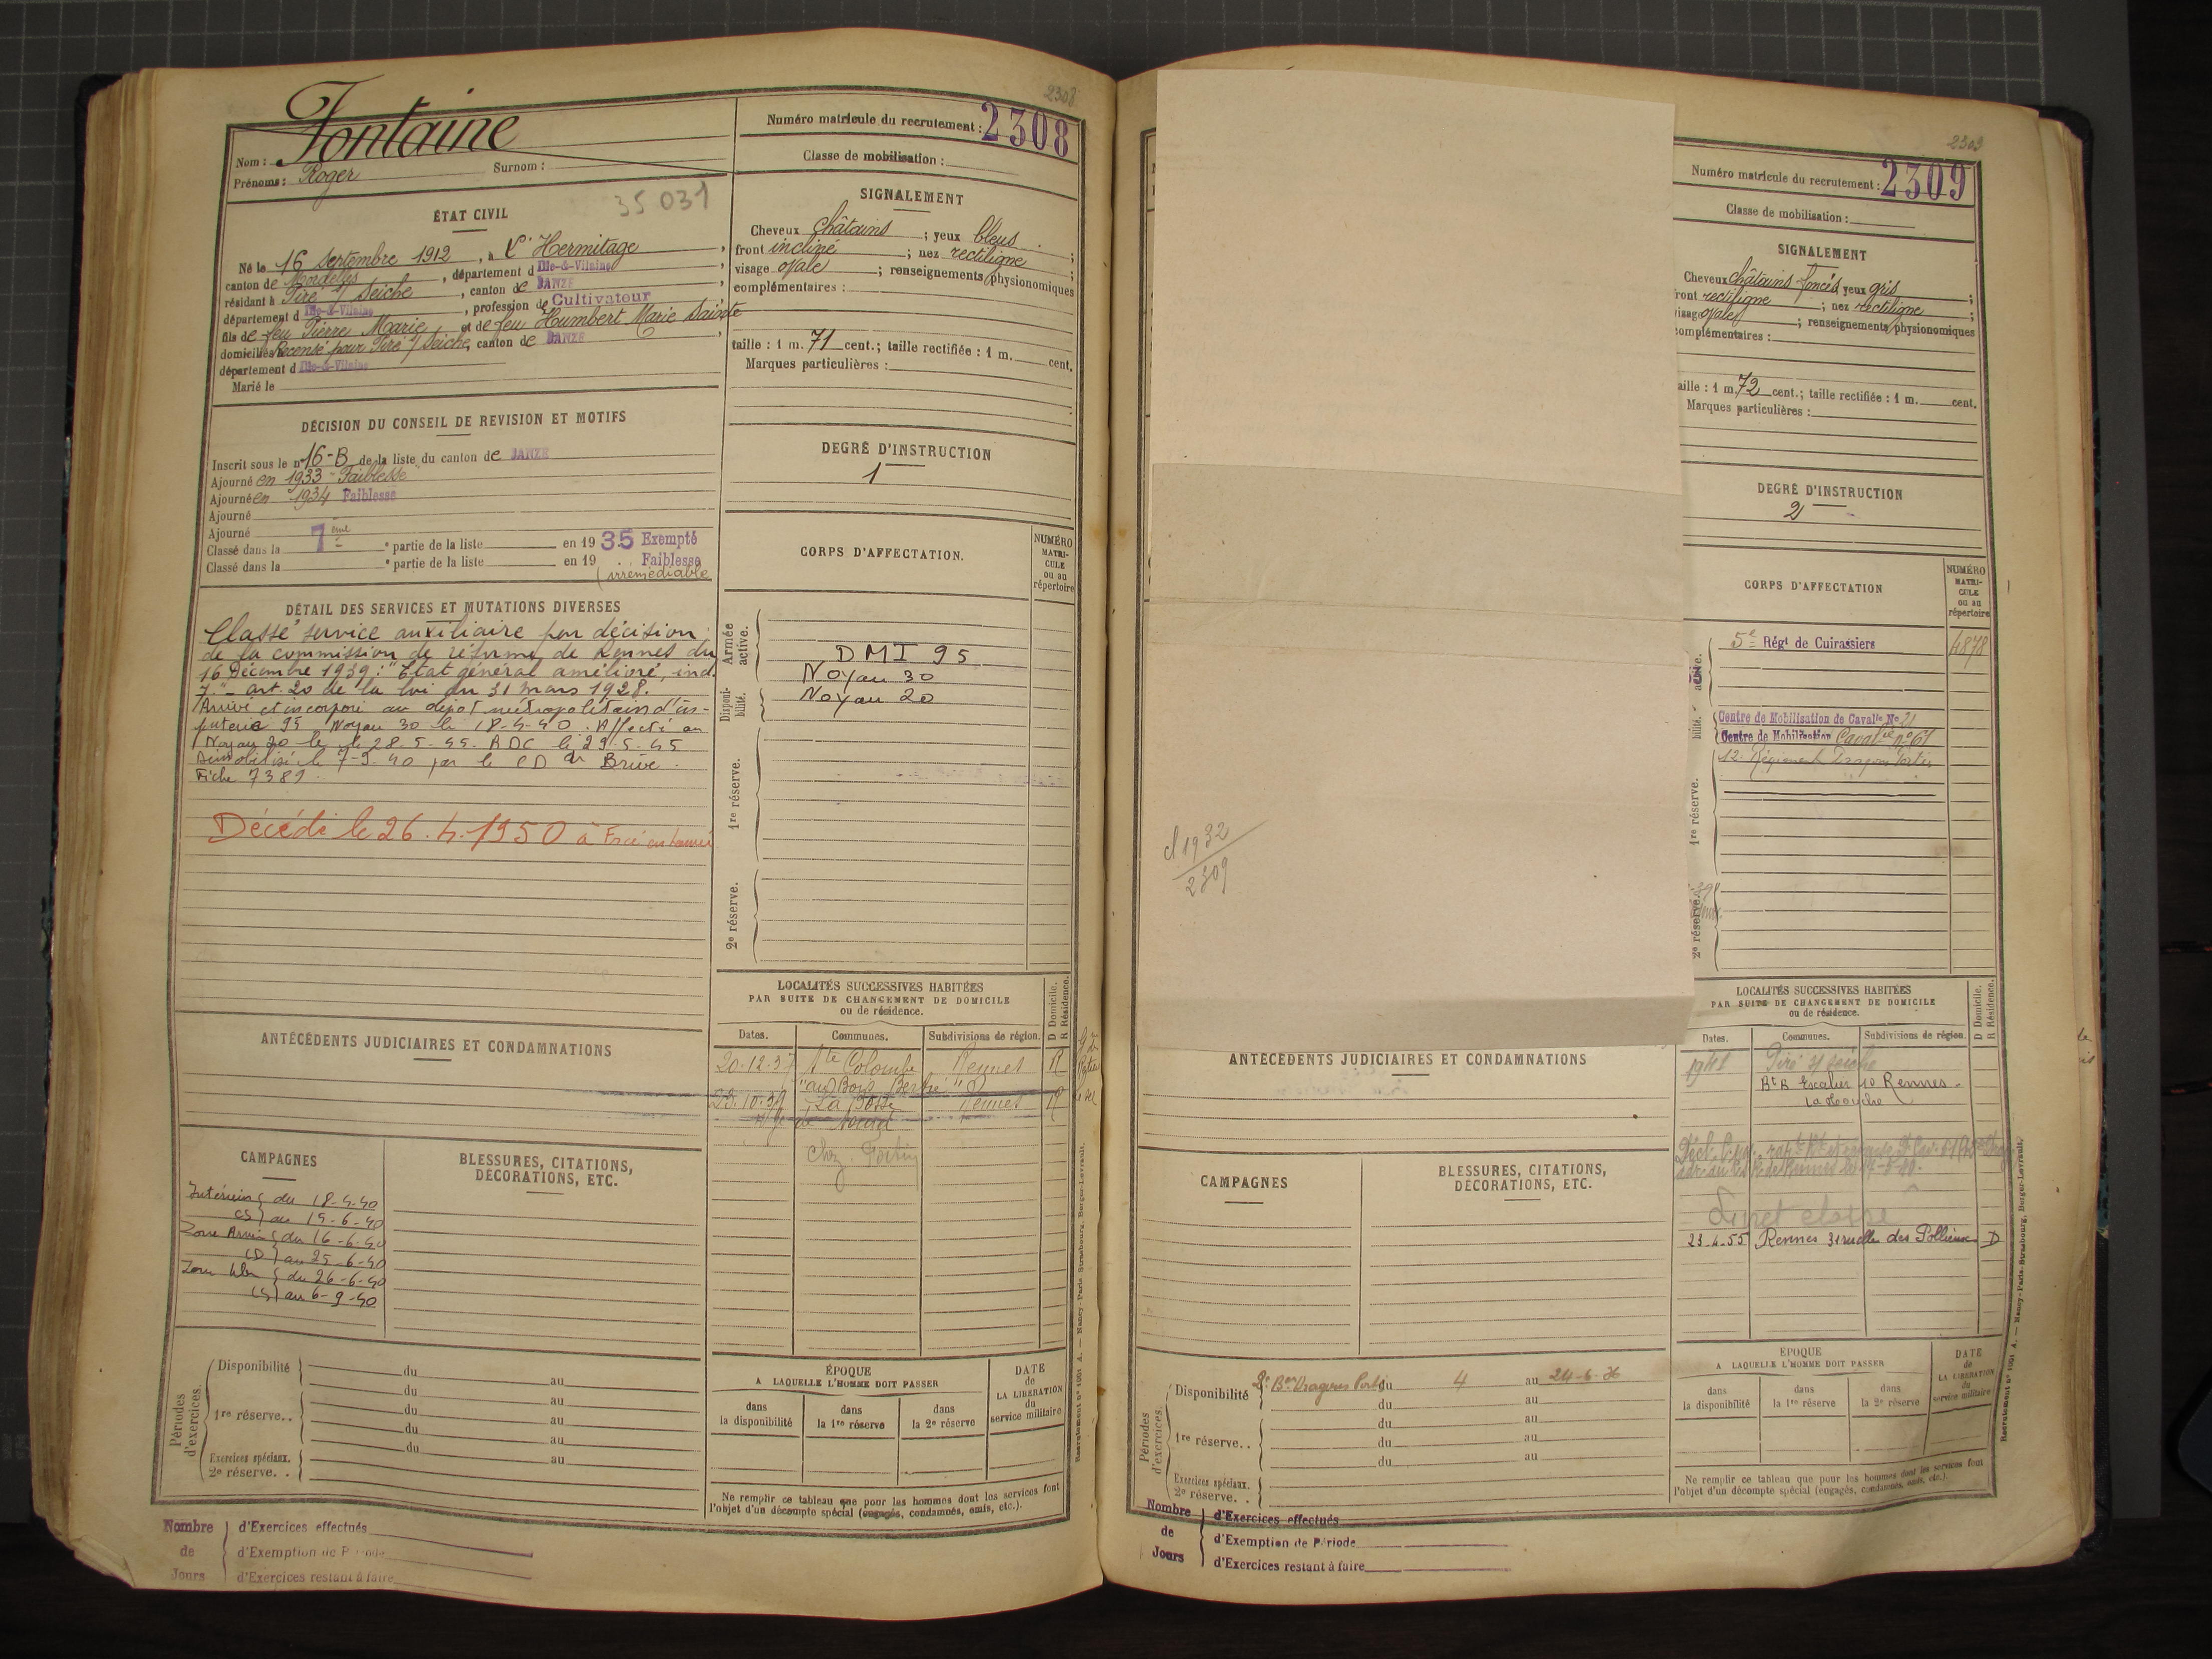 2308
Nom : Fontaine
Prénoms : Roger Surnom :
Numéro matricule du recrutement : 2308
Classe de mobilisation :
35 031
ÉTAT CIVIL
Né le 16 Septembre 1912, à L'Hermitage
canton de Mordelles, département d Ille-&-Vilaine
résidant à Piré s/ Seiche, canton de JANZÉ
département d Ille-&-Vilaine, profession de Cultivateur
fils de feu Pierre Marie et de feu Humbert Marie Sainte
domiciliés Recensé pour Piré s/ Seiche, canton de JANZÉ
département d Ille-&-Vilaine
Marié le
SIGNALEMENT
Cheveux châtains ; yeux bleus ;
front incliné ; nez rectiligne ;
visage ovale ; renseignements physionomiques
complémentaires :
taille : 1 m. 71 cent.; taille rectifiée : 1 m. cent.
Marques particulières :
DÉCISION DU CONSEIL DE REVISION ET MOTIFS
Inscrit sous le n° 16-B de la liste du canton de JANZÉ
Ajourné en 1933 "Faiblesse"
Ajourné en 1934 Faiblesse
Ajourné
Ajourné
Classé dans la 7ème partie de la liste en 1935 Exempté
Classé dans la partie de la liste en 19 Faiblesse
(irrémédiable
DEGRÉ D'INSTRUCTION
1
DÉTAIL DES SERVICES ET MUTATIONS DIVERSES
Classé service auxiliaire par décision
de la commission de réforme de Rennes du
16 Décembre 1939 : "Etat général amélioré, ind.
7." - art. 20 de la loi du 31 mars 1928.
Arrivé et incorporé au dépot métropolitain d'in-
fanterie 95 Noyau 30 le 18-4-40. Affecté au
Noyau 20 le 28-5-45. RDC le 29-5-45
Démobilisé le 7-9-40 par le CD de Brive.
Fiche 7381.
Décédé le 26.4.1950 à
CORPS D'AFFECTATION.
NUMÉRO
MATRI-
CULE
ou au
répertoire
Armée
active.
DMI 95
Noyau 30
Disponi-
bilité.
Noyau 20
1re réserve.
2e réserve.
ANTÉCÉDENTS JUDICIAIRES ET CONDAMNATIONS
LOCALITÉS SUCCESSIVES HABITÉES
PAR SUITE DE CHANGEMENT DE DOMICILE
ou de résidence.
D Domicile.
R Résidence.
Dates. Communes. Subdivisions de région.
20-12-37 Ste Colombe Rennes R
"au Bois
23.10.39 La Bosse Rennes R
chez
CAMPAGNES
Intérieur du 18-4-40
CS au 15-6-40
Zone Armées du 16-6-40
CD au 25-6-40
Zone libre du 26-6-40
CS au 6-9-40
BLESSURES, CITATIONS,
DÉCORATIONS, ETC.
Périodes
d'exercices.
Disponibilité du au
du au
1re réserve.. du au
du au
du au
Exercices spéciaux.
2e réserve. .
ÉPOQUE
A LAQUELLE L'HOMME DOIT PASSER
dans
la disponibilité
dans
la 1re réserve
dans
la 2e réserve
DATE
de
LA LIBÉRATION
du
service militaire
Ne remplir ce tableau que pour les hommes dont les services font
l'objet d'un décompte spécial (engagés, condamnés, omis, etc.).
Recrutement n° 1051 A. — Nancy-Paris-Strasbourg, Berger-Levrault.
Nombre
de
Jours
d'Exercices effectués
d'Exemption de Période
d'Exercices restant à faire
cl 1932
2309
2309
Numéro matricule du recrutement : 2309
Classe de mobilisation :
SIGNALEMENT
Cheveux châtains foncés yeux gris ;
front rectiligne ; nez rectiligne ;
visage ovale ; renseignements physionomiques
complémentaires :
taille : 1 m. 72 cent.; taille rectifiée : 1 m. cent.
Marques particulières :
DEGRÉ D'INSTRUCTION
2
CORPS D'AFFECTATION
NUMÉRO
MATRI-
CULE
ou au
répertoire
5e Régt de Cuirassiers 4878
Centre de Mobilisation de Cavalie No 21
Centre de Mobilisation Cavalie no 61
12. Régiment Dragons Portés
1re réserve.
2e réserve.
ANTÉCÉDENTS JUDICIAIRES ET CONDAMNATIONS
LOCALITÉS SUCCESSIVES HABITÉES
PAR SUITE DE CHANGEMENT DE DOMICILE
ou de résidence.
D Domicile.
R Résidence.
Dates. Communes. Subdivisions de région.
1941 Piré s/ Seiche
Bt B Escalier 10 Rennes -
La Touche
23-4-55 Rennes 31 ruelle des D
CAMPAGNES
BLESSURES, CITATIONS,
DÉCORATIONS, ETC.
Périodes
d'exercices.
Disponibilité 2e Bon Dragons Portés du 4 au 24-6-36
du au
1re réserve.. du au
du au
du au
Exercices spéciaux.
2e réserve. .
ÉPOQUE
A LAQUELLE L'HOMME DOIT PASSER
dans
la disponibilité
dans
la 1re réserve
dans
la 2e réserve
DATE
de
LA LIBÉRATION
du
service militaire
Ne remplir ce tableau que pour les hommes dont les services font
l'objet d'un décompte spécial (engagés, condamnés, omis, etc.).
Recrutement n° 1051 A. — Nancy-Paris-Strasbourg, Berger-Levrault.
Nombre
de
Jours
d'Exercices effectués
d'Exemption de Période
d'Exercices restant à faire